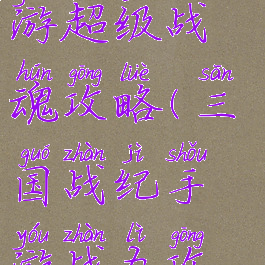 游超级战
hún gōng lüè sān
魂攻略(三
guó zhàn jì shǒu
国战纪手
yóu zhàn lì gōng
游战力攻